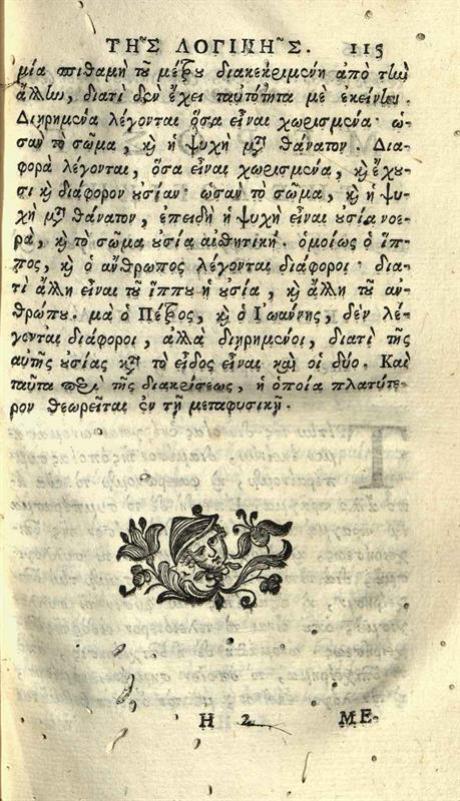 ΤΗ͂Σ ΛΟΓΙΚΗ͂Σ. 115
μία πιθαμὴ τοῦ μέτρου διακεκριμένη ἀπὸ τὴν
ἄλλην, διατὶ δὲν ἔχει ταυτότητα μὲ ἐκείνην.
Διῃρημένα λέγονται ὅσα εἶναι χωρισμένα· ὡ-
σὰν τὸ σῶμα, καὶ ἡ ψυχὴ μετὰ θάνατον. Δια-
φορὰ λέγονται, ὅσα εἶναι χωρισμένα, καὶ ἔχου-
σι καὶ διάφορον οὐσίαν· ὡσὰν τὸ σῶμα, καὶ ἡ ψυ-
χὴ μετὰ θάνατον, ἐπειδὴ ἡ ψυχὴ εἶναι οὐσία νοε-
ρὰ, καὶ τὸ σῶμα οὐσία αἰσθητική. ὁμοίως ὁ ἵπ-
πος, καὶ ὁ ἄνθρωπος λέγονται διάφοροι· δια-
τὶ ἄλλη εἶναι τοῦ ἵππου ἡ οὐσία, καὶ ἄλλη τοῦ ἀν-
θρώπου. μὰ ὁ Πέτρος, καὶ ὁ Ἰωάννης, δὲν λέ-
γονται διάφοροι, ἀλλὰ διῃρημένοι, διατὶ τῆς
αὐτῆς οὐσίας κατὰ τὸ εἶδος εἶναι καὶ οἱ δύο. Καὶ
ταῦτα περὶ τῆς διακρίσεως, ἡ ὁποία πλατύτε-
ρον θεωρεῖται ἐν τῇ μεταφυσικῇ.
Η 2 ΜΕ-